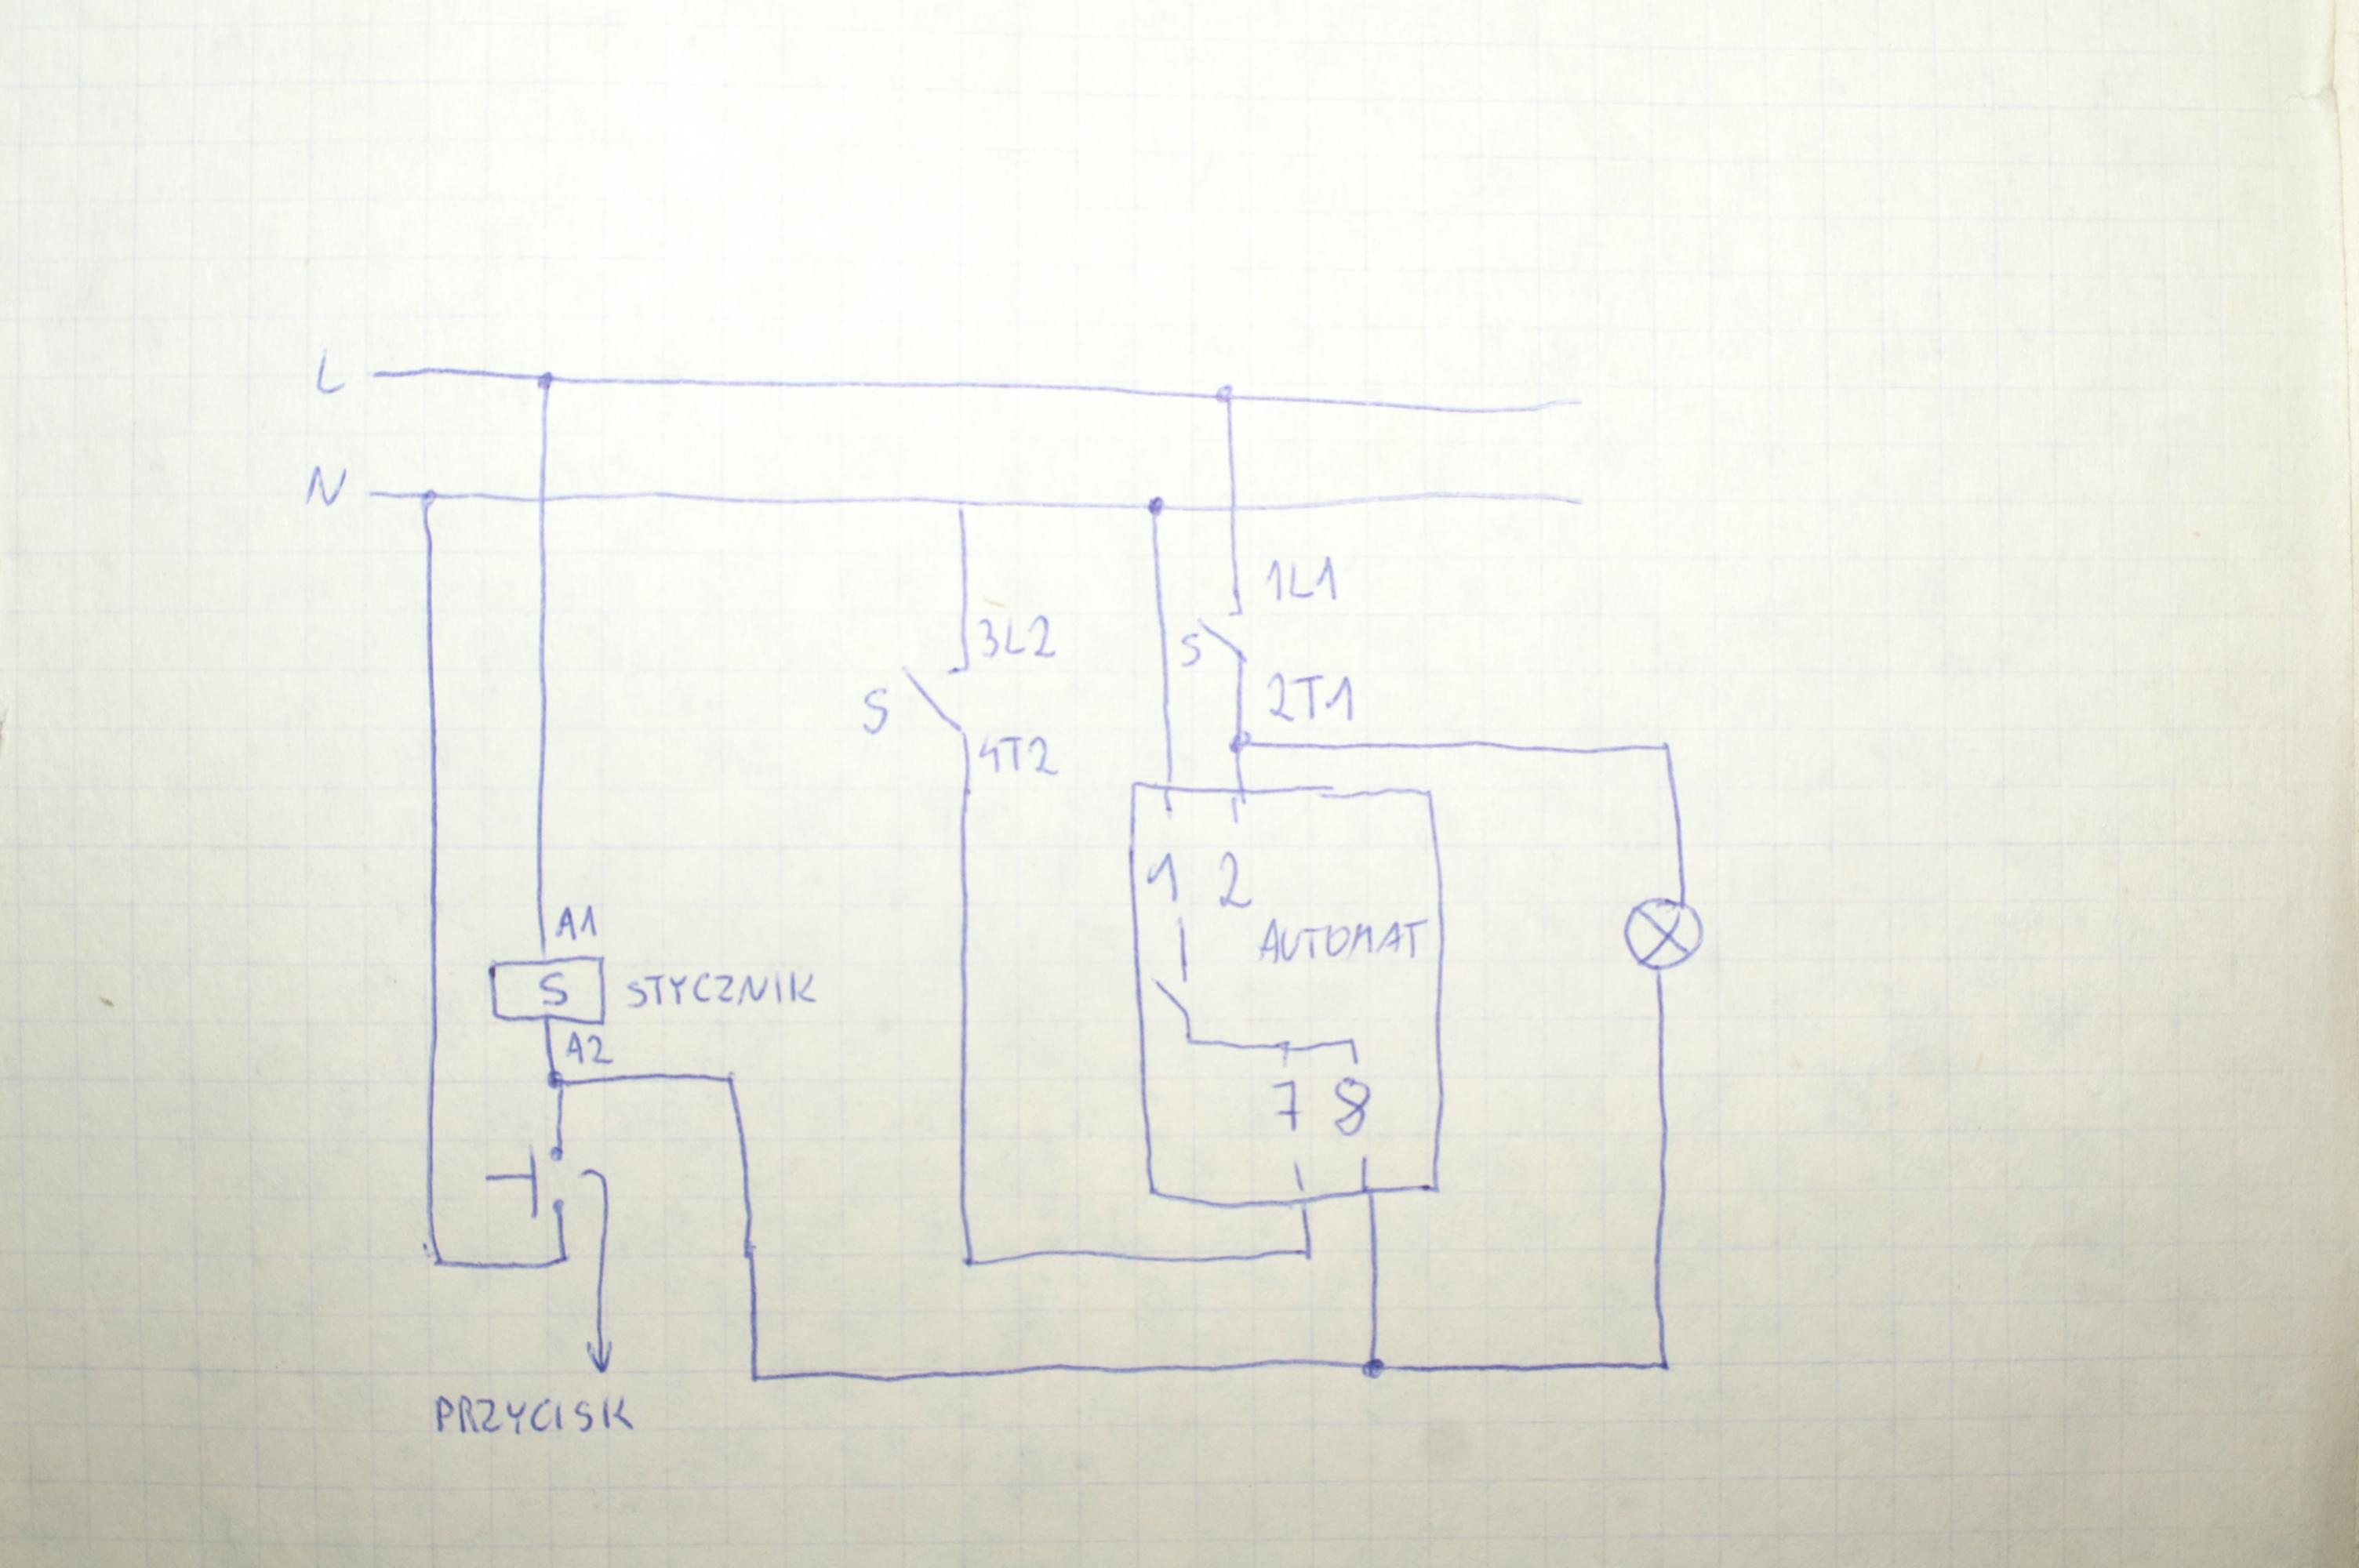 L
N
1L1
3L2
S
2T1
S
4T2
1 2
A1
AUTOMAT
S STYCZNIK
A2
7 8
PRZYCISK